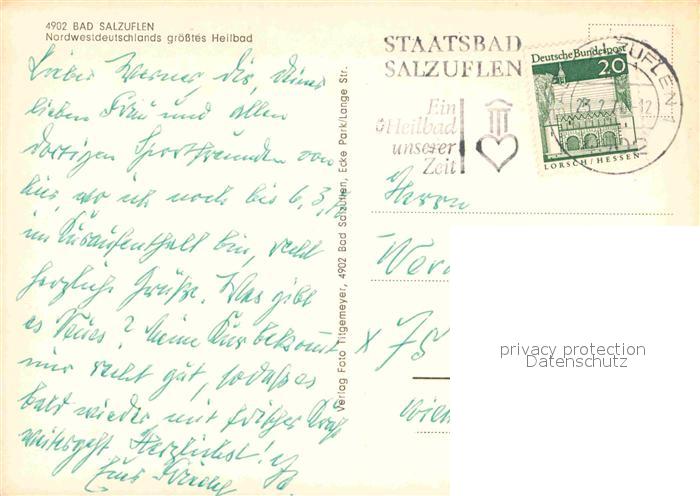 4902 BAD SALZUFLEN
Nordwestdeutschlands größtes Heilbad
Lieber Werner, Dir, Deiner
lieben Frau und allen
dortigen Sportfreunden von
hier, wo ich noch bis 6.3.
im Kuraufenthalt bin, recht
herzliche Grüße. Was gibt
es Neues? Meine Kur bekommt
mir recht gut, sodaß es
bald wieder mit frischer Kraft
weitergeht. Herzlichst!
Euer
Verlag Foto Titgemeyer, 4902 Bad Salzuflen, Ecke Park/Lange Str.
STAATSBAD
SALZUFLEN
Ein
Heilbad
unserer
Zeit
Deutsche Bundespost
20
LORSCH/HESSEN
Herrn
X 75
privacy protection
Datenschutz